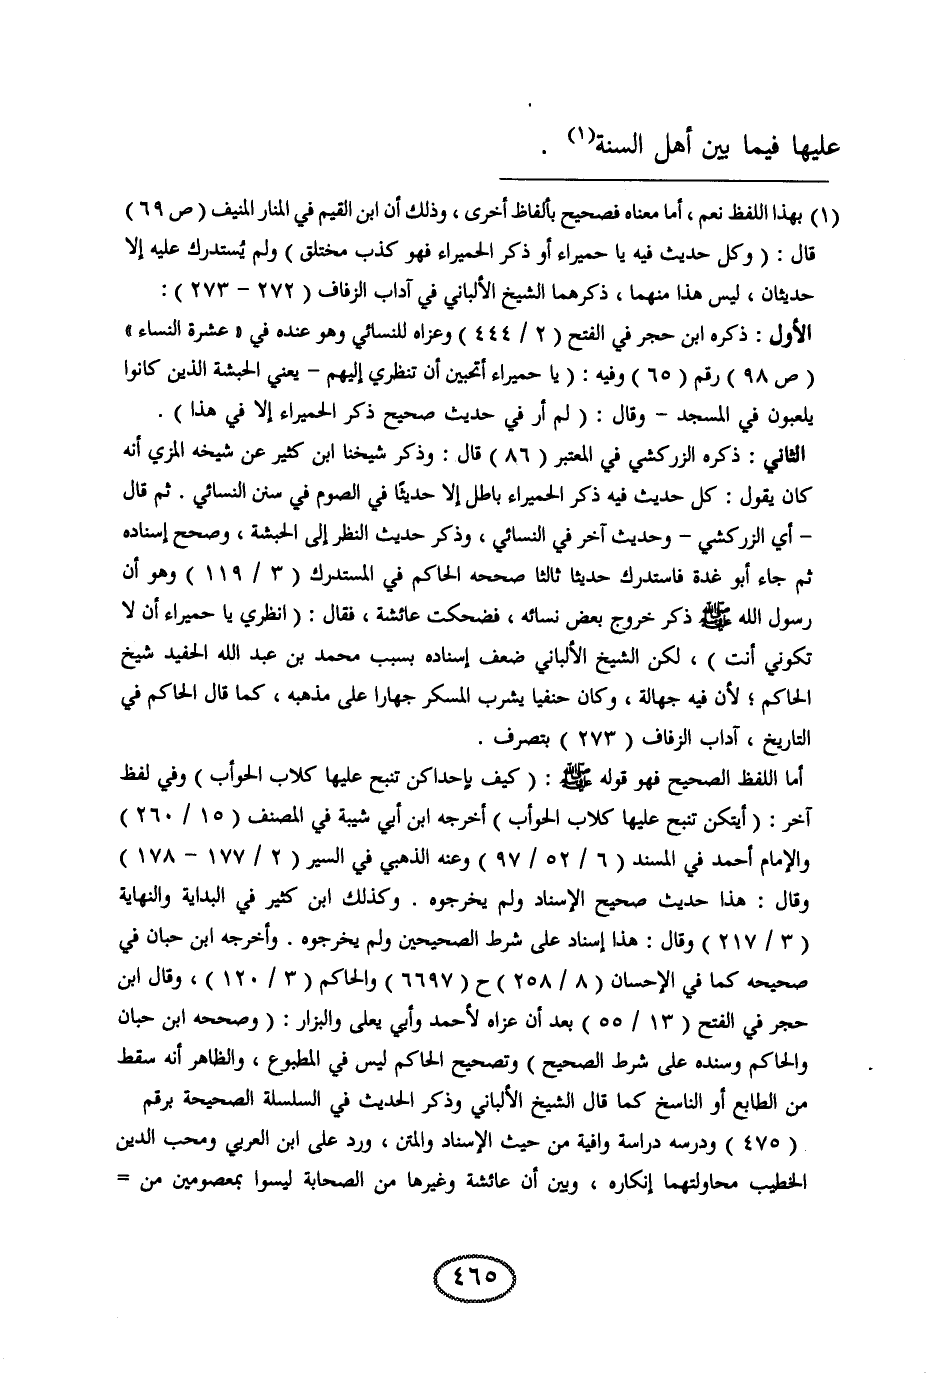 عليها فيما بين أهل السنة(١) .
(١) بهذا اللفظ نعم ، أما معناه فصحيح بألفاظ أخرى ، وذلك أن ابن القيم في المنار المنيف ( ص ٦٩ )
قال : ( وكل حديث فيه يا حميراء أو ذكر الحميراء فهو كذب مختلق ) ولم يُستدرك عليه إلا
حديثان ، ليس هذا منهما ، ذكرهما الشيخ الألباني في آداب الزفاف ( ٢٧٢ – ٢٧٣ ) :
الأول : ذكره ابن حجر في الفتح ( ٢ / ٤٤٤ ) وعزاه للنسائي وهو عنده في « عشرة النساء »
( ص ٩٨ ) رقم ( ٦٥ ) وفيه : ( يا حميراء أتحبين أن تنظري إليهم – يعني الحبشة الذين كانوا
يلعبون في المسجد – وقال : ( لم أر في حديث صحيح ذكر الحميراء إلا في هذا ) .
الثاني : ذكره الزركشي في المعتبر ( ٨٦ ) قال : وذكر شيخنا ابن كثير عن شيخه المزي أنه
كان يقول : كل حديث فيه ذكر الحميراء باطل إلا حديثًا في الصوم في سنن النسائي . ثم قال
– أي الزركشي – وحديث آخر في النسائي ، وذكر حديث النظر إلى الحبشة ، وصحح إسناده
ثم جاء أبو غدة فاستدرك حديثا ثالثا صححه الحاكم في المستدرك ( ٣ / ١١٩ ) وهو أن
رسول الله ﷺ ذكر خروج بعض نسائه ، فضحكت عائشة ، فقال : ( انظري يا حميراء أن لا
تكوني أنت ) ، لكن الشيخ الألباني ضعف إسناده بسبب محمد بن عبد الله الحفيد شيخ
الحاكم ؛ لأن فيه جهالة ، وكان حنفيا يشرب المسكر جهارا على مذهبه ، كما قال الحاكم في
التاريخ ، آداب الزفاف ( ٢٧٣ ) بتصرف .
أما اللفظ الصحيح فهو قوله ﷺ : ( كيف بإحداكن تنبح عليها كلاب الحوأب ) وفي لفظ
آخر : ( أيتكن تنبح عليها كلاب الحوأب ) أخرجه ابن أبي شيبة في المصنف ( ١٥ / ٢٦٠ )
والإمام أحمد في المسند ( ٦ / ٥٢ / ٩٧ ) وعنه الذهبي في السير ( ٢ / ١٧٧ – ١٧٨ )
وقال : هذا حديث صحيح الإسناد ولم يخرجوه . وكذلك ابن كثير في البداية والنهاية
( ٣ / ٢١٧ ) وقال : هذا إسناد على شرط الصحيحين ولم يخرجوه . وأخرجه ابن حبان في
صحيحه كما في الإحسان ( ٨ / ٢٥٨ ) ح ( ٦٦٩٧ ) والحاكم ( ٣ / ١٢٠ ) ، وقال ابن
حجر في الفتح ( ١٣ / ٥٥ ) بعد أن عزاه لأحمد وأبي يعلى والبزار : ( وصححه ابن حبان
والحاكم وسنده على شرط الصحيح ) وتصحيح الحاكم ليس في المطبوع ، والظاهر أنه سقط
من الطابع أو الناسخ كما قال الشيخ الألباني وذكر الحديث في السلسلة الصحيحة برقم
( ٤٧٥ ) ودرسه دراسة وافية من حيث الإسناد والمتن ، ورد على ابن العربي ومحب الدين
الخطيب محاولتهما إنكاره ، وبين أن عائشة وغيرها من الصحابة ليسوا بمعصومين من =
٤٦٥